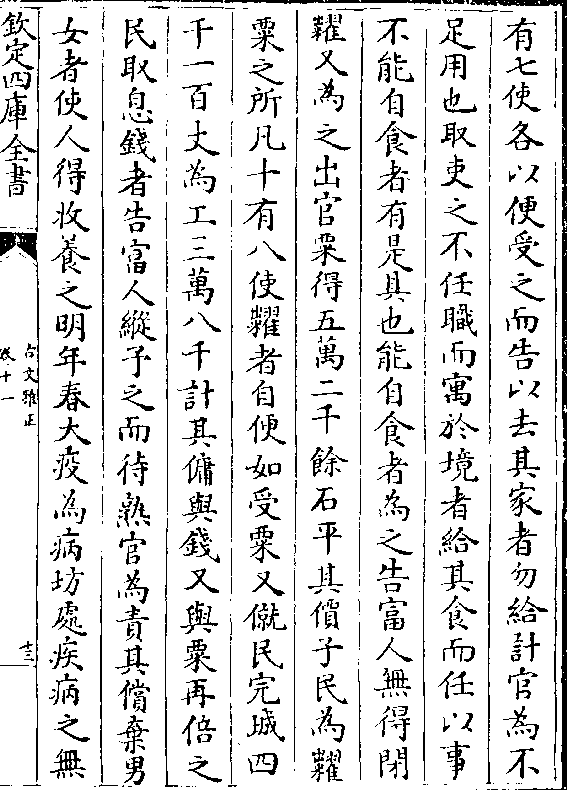 有七使各以便受之而告以去其家者勿給計官為不
足用也取吏之不任職而寓於境者給其食而任以事
不能自食者有是具也能自食者為之告富人無得閉
糶又為之出官粟得五萬二千餘石平其價予民為糶
粟之所凡十有八使糴者自便如受粟又僦民完城四
千一百丈為工三萬八千計其傭與錢又與粟再倍之
民取息錢者告富人縱予之而待熟官為責其償棄男
女者使人得收養之明年春大疫為病坊處疾病之無
欽定四庫全書
古文雅正
卷十一
十三